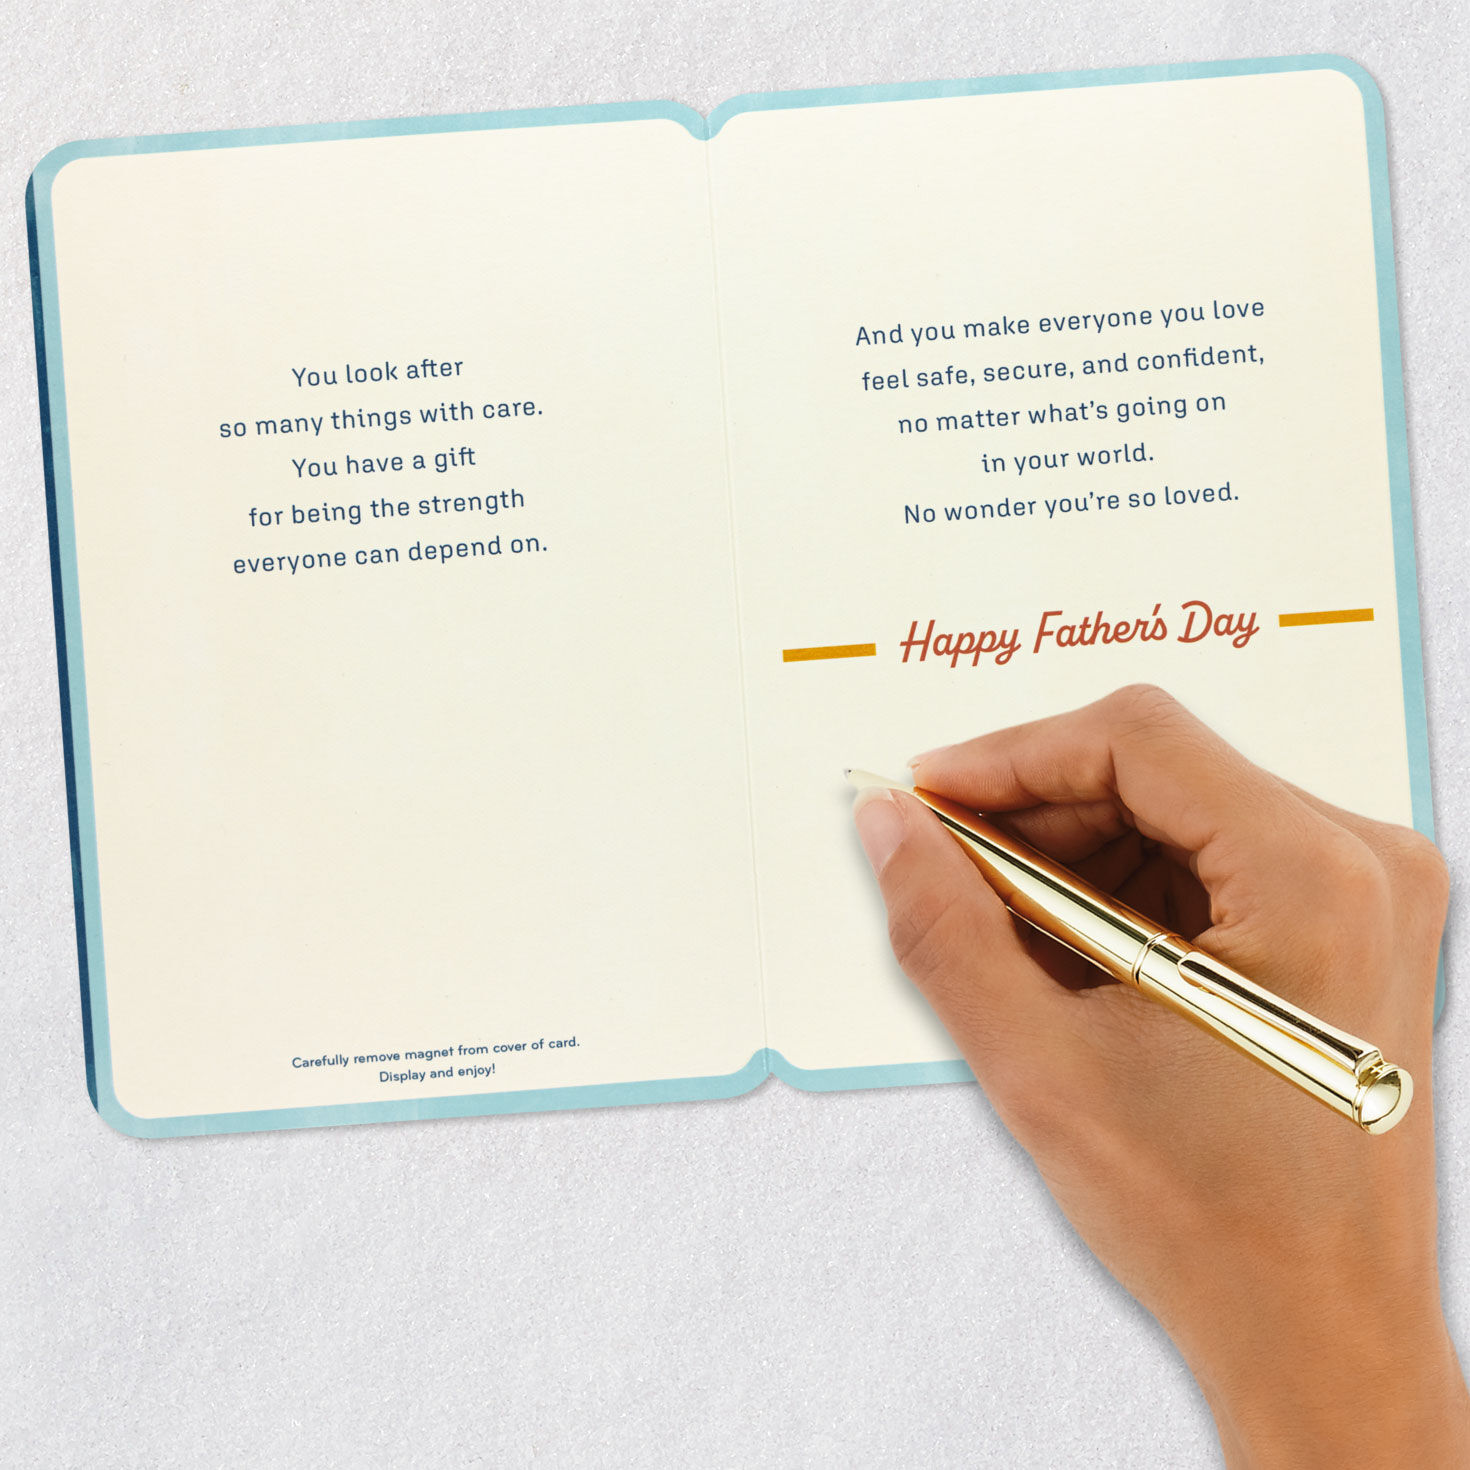 You look after
so many things with care.
You have a gift
for being the strength
everyone can depend on.
Carefully remove magnet from cover of card.
Display and enjoy!
And you make everyone you love
feel safe, secure, and confident,
no matter what's going on
in your world.
No wonder you're so loved.
Happy Father's Day